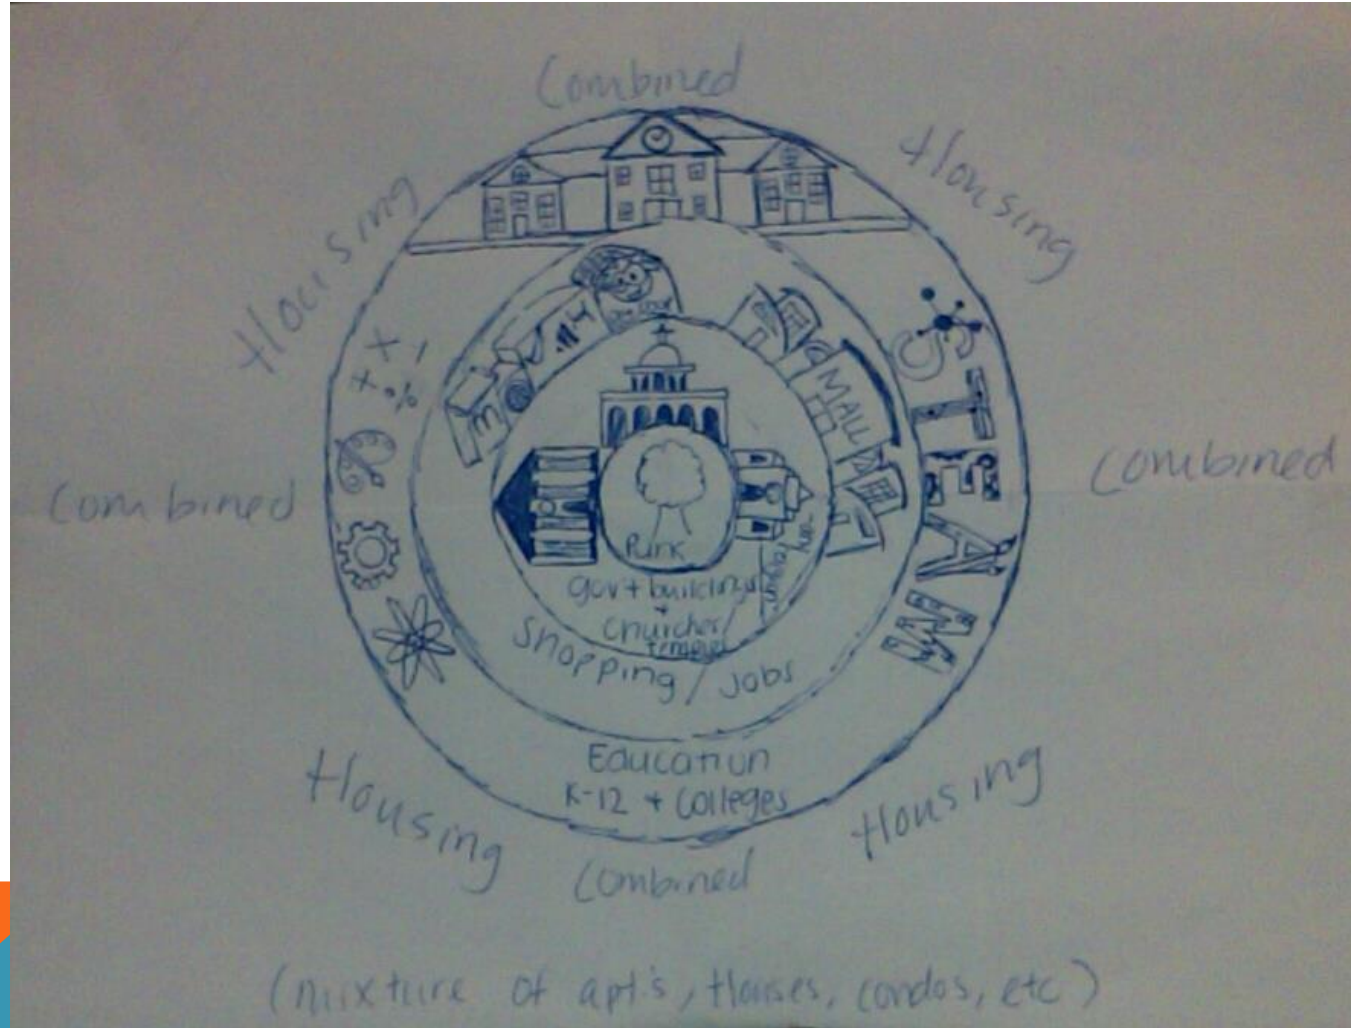 Combined
Housing
Housing
MALL
STEAM
Combined
Combined
Park
gov't buildings
+
Churches/
temples
Shopping / Jobs
Education
K-12 + Colleges
Housing
Housing
Combined
(mixture of apt.'s, Houses, condos, etc)